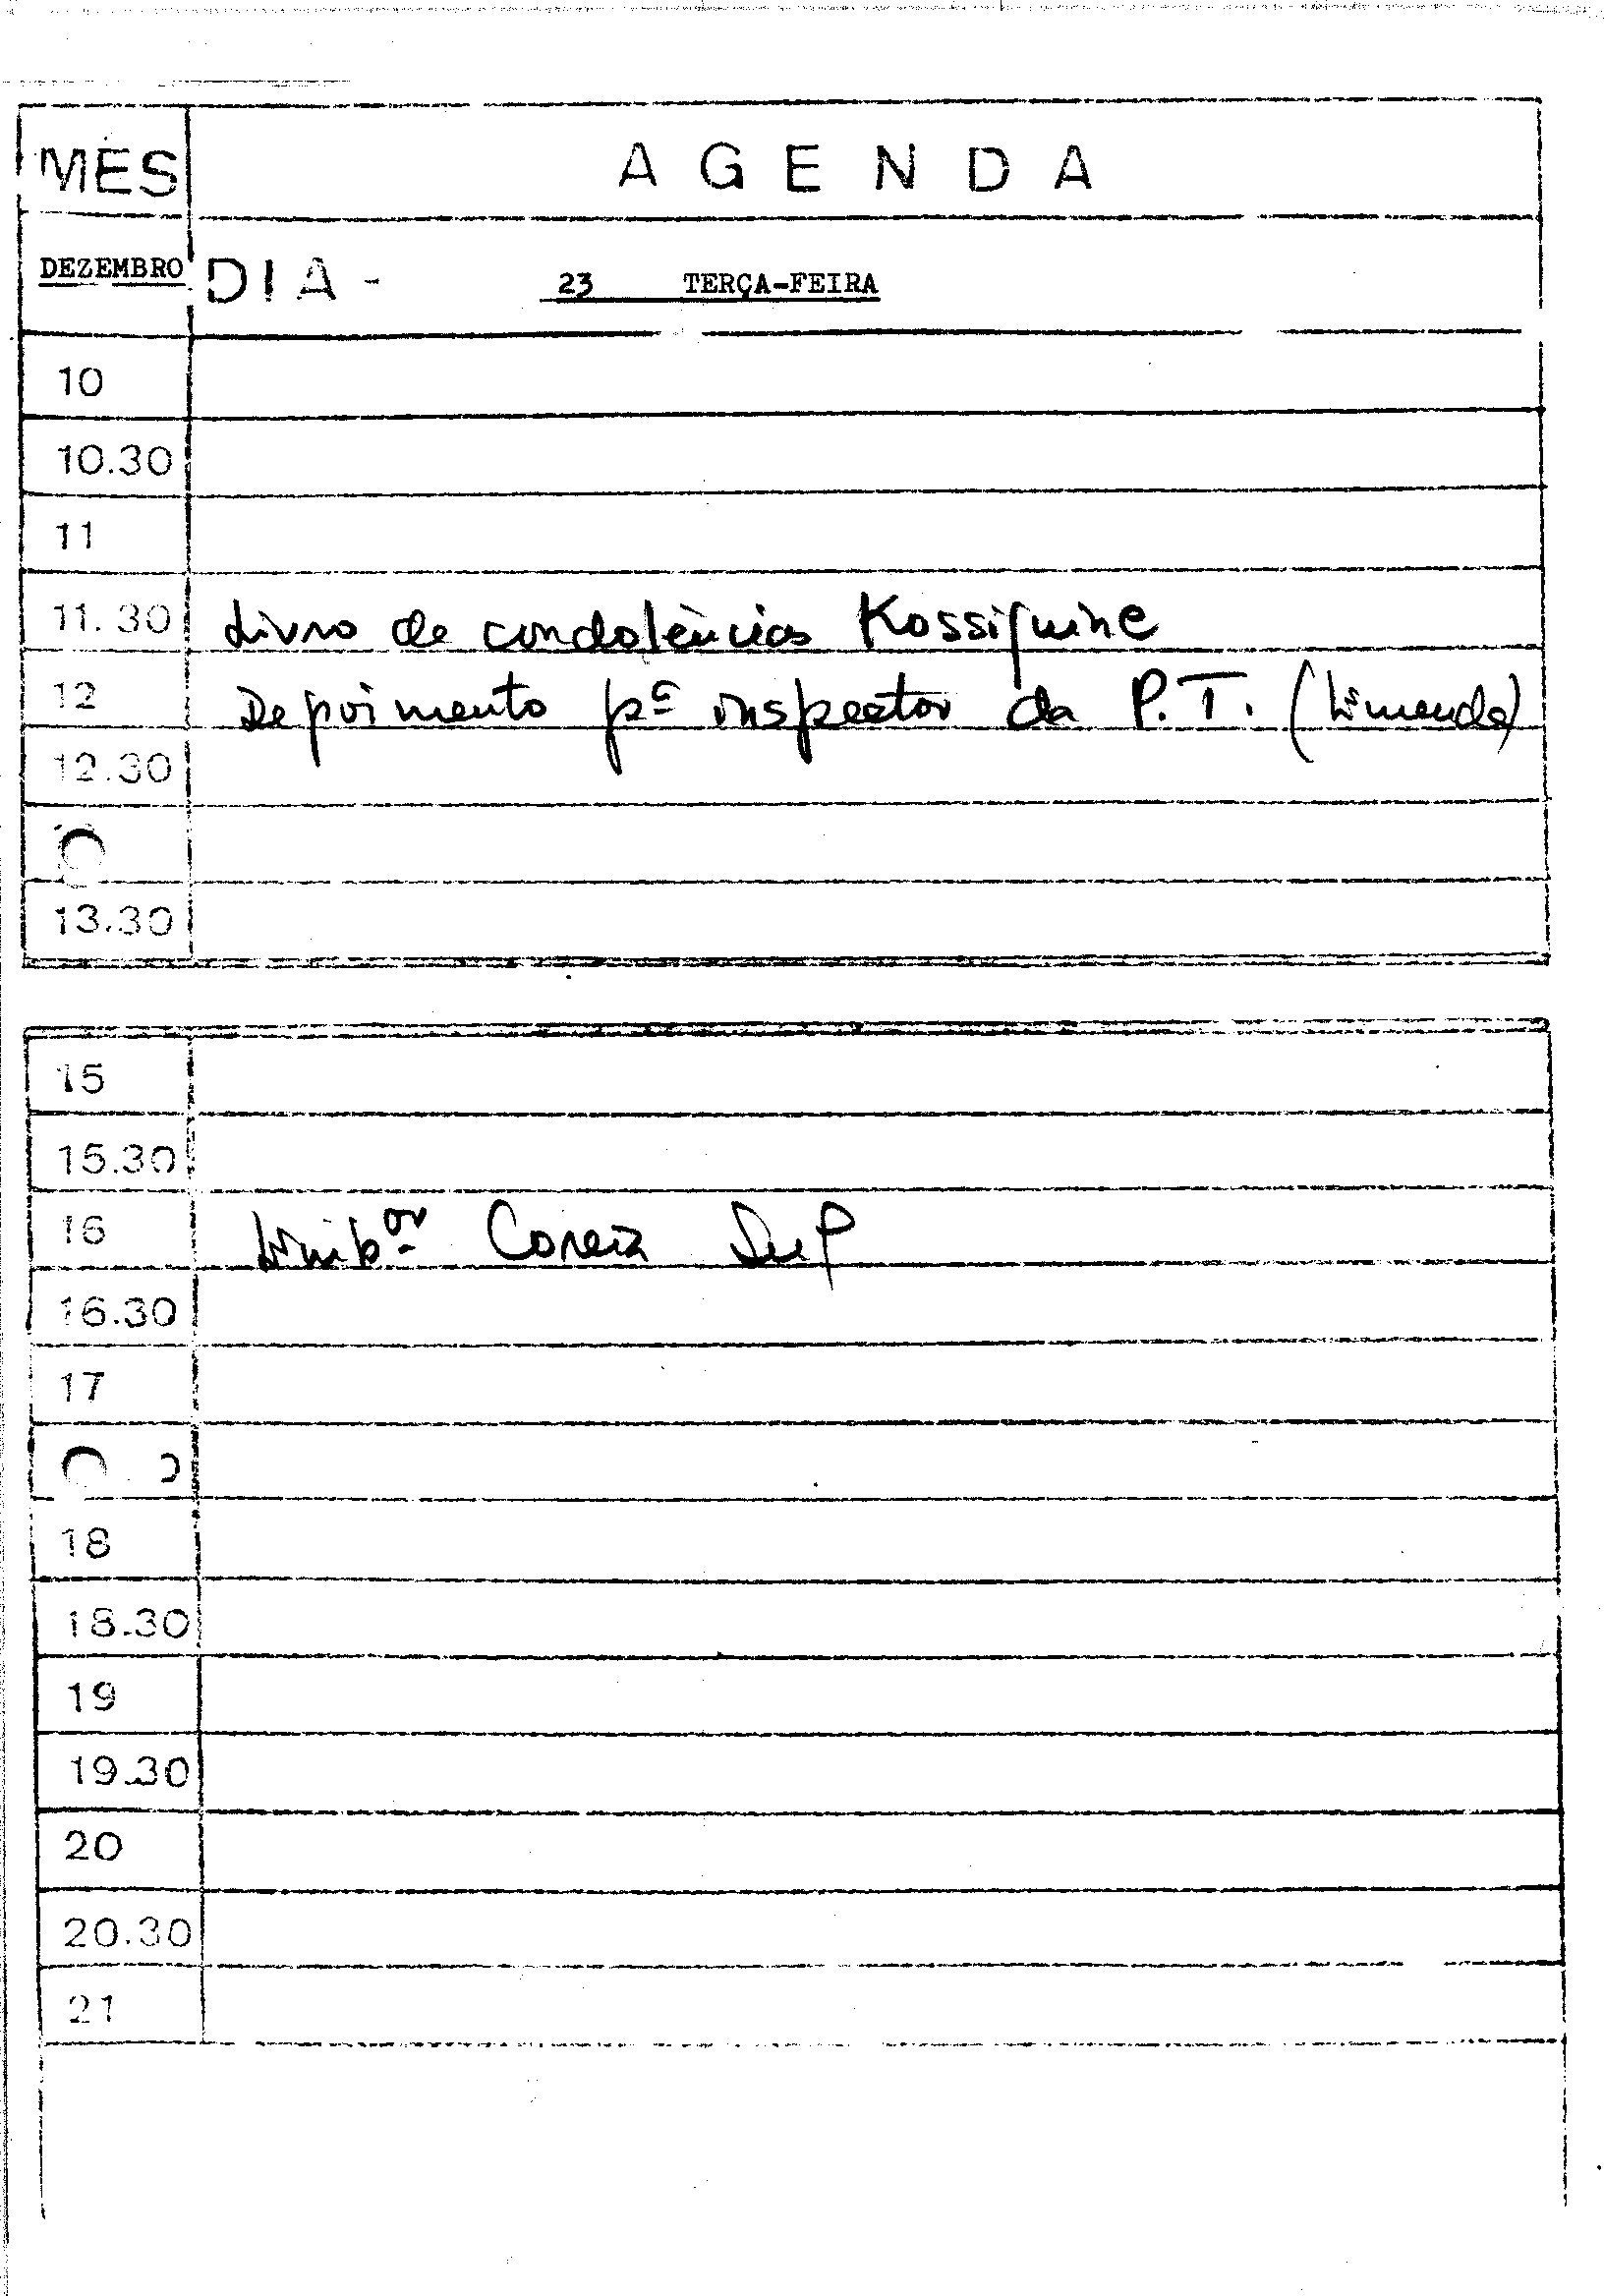 MÊS A G E N D A
DEZEMBRO DIA - 23 TERÇA-FEIRA
10
10.30
11
11.30 Livro de condolências Kossiguine
12 Depoimento pª inspector da P.T. (Limenda)
12.30
13.30
15
15.30
16 Correia
16.30
17
18
18.30
19
19.30
20
20.30
21